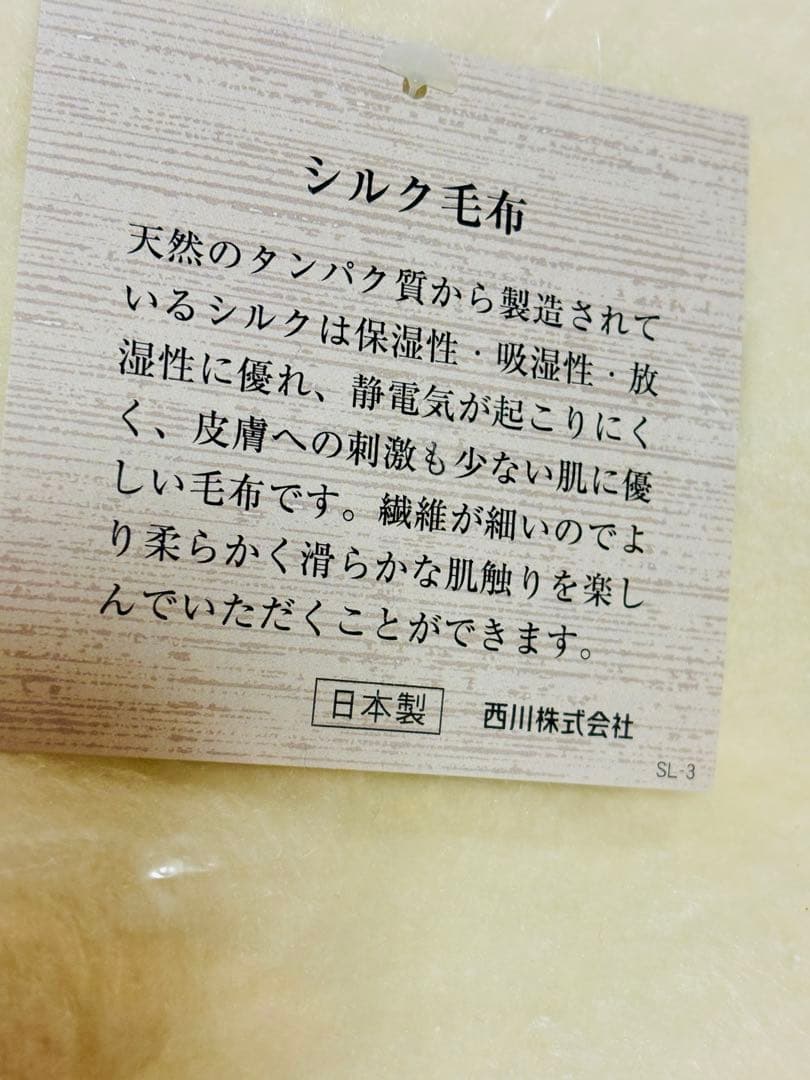 シルク毛布
天然のタンパク質から製造されて
いるシルクは保湿性・吸湿性・放
湿性に優れ、静電気が起こりにく
く、皮膚への刺激も少ない肌に優
しい毛布です。繊維が細いのでよ
り柔らかく滑らかな肌触りを楽し
んでいただくことができます。
日本製 西川株式会社
SL-3